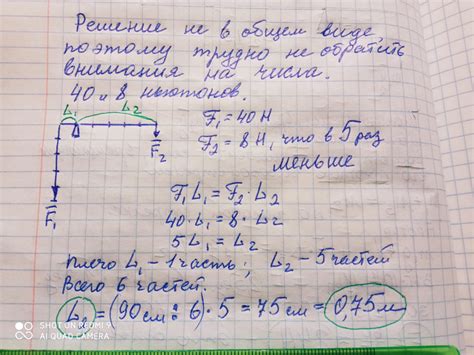 Решение не в общем виде,
поэтому трудно не обратить
внимания на числа.
40 и 8 ньютонов.
L₁ L₂
F₁ = 40 Н
F₂ = 8 Н, что в 5 раз
меньше
F̅₂
F̅₁
F₁L₁ = F₂·L₂
40·L₁ = 8·L₂
5L₁ = L₂
плечо L₁ – 1 часть; L₂ – 5 частей
Всего 6 частей.
L₂ = (90 см : 6)·5 = 75 см = 0,75 м
SHOT ON REDMI 9
AI QUAD CAMERA